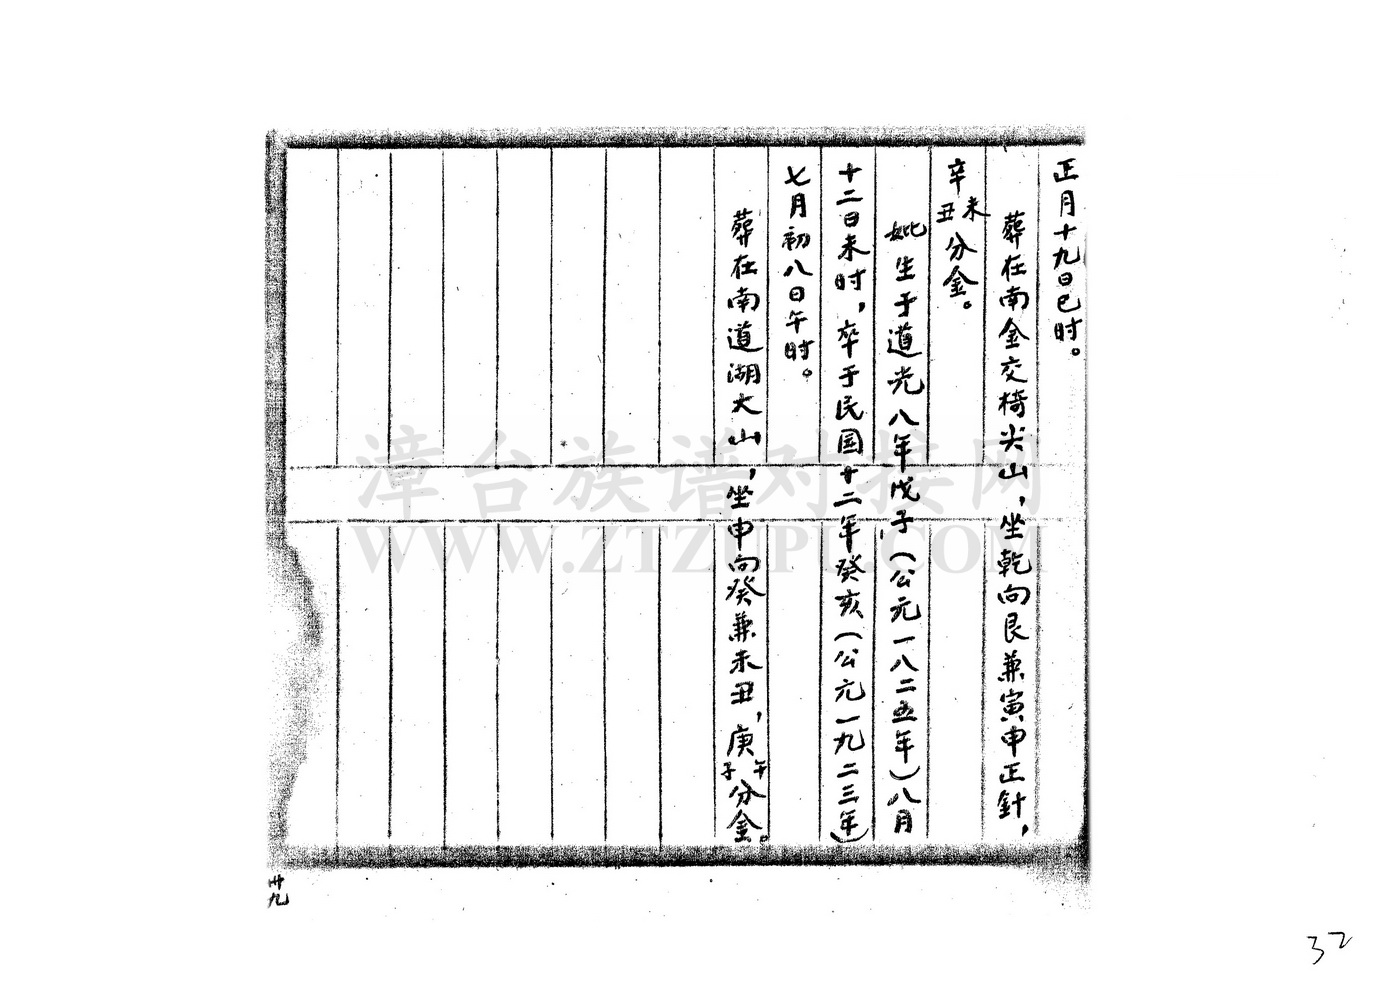 正月十九日巳时。
葬在南金交椅尖山，坐乾向艮兼寅申正針，
辛未丑分金。
妣生于道光八年戊子（公元一八二五年）八月
十二日未时，卒于民国十二年癸亥（公元一九二三年）
七月初八日午时。
葬在南道湖大山，坐申向癸兼未丑，庚午子分金。
卅九
32
漳台族谱对接网
WWW.ZTZUPU.COM